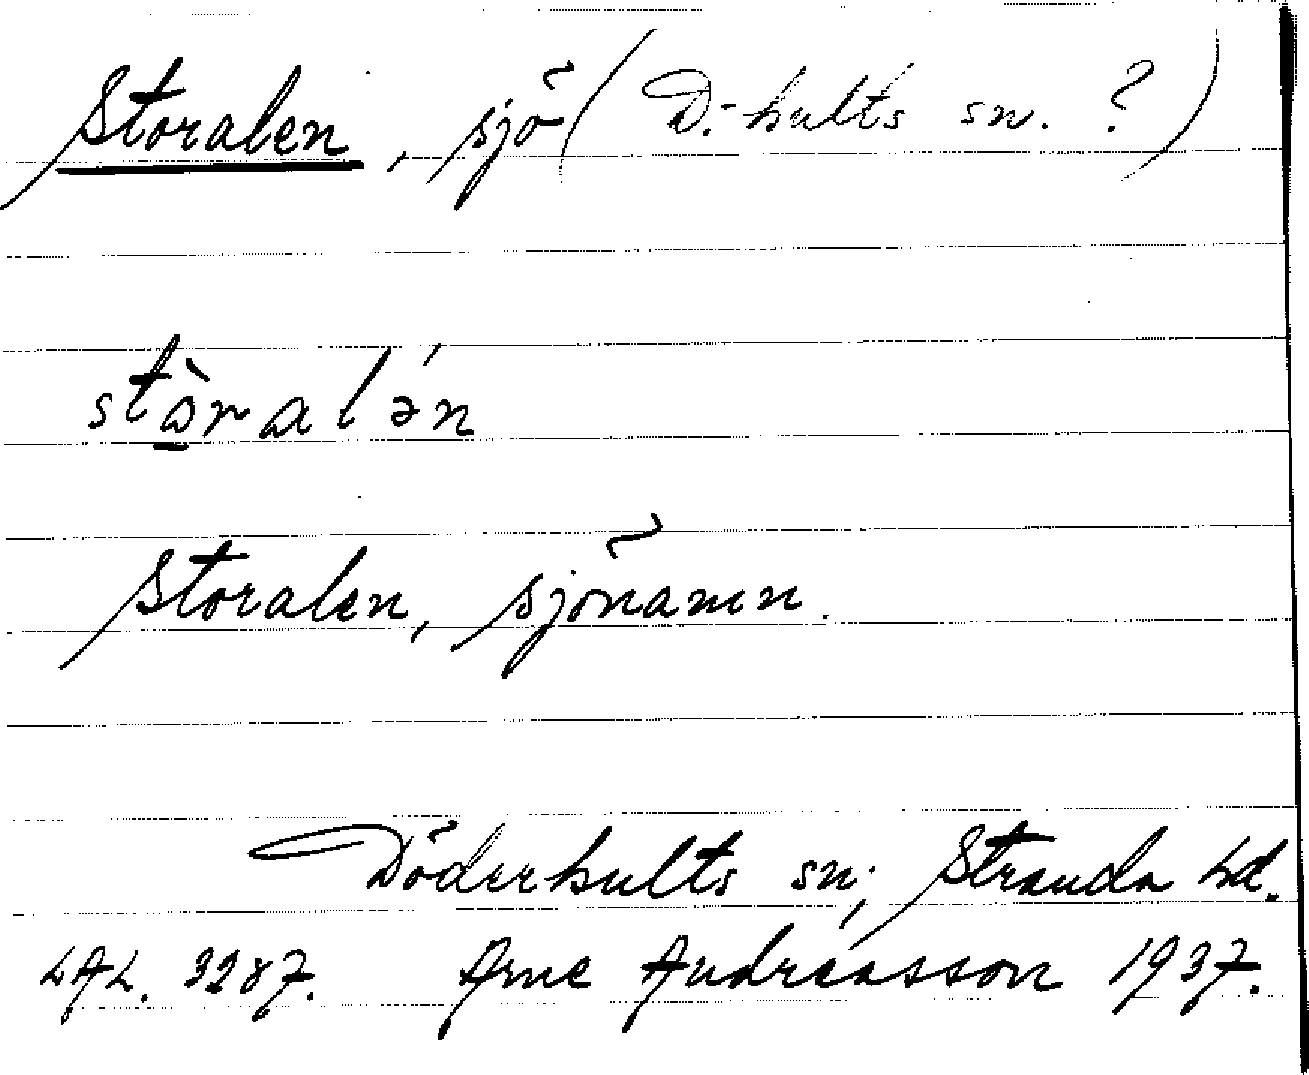 Storalen, sjö (D.-hults sn. ?)
stòralən
Storalen, sjönamn.
Döderhults sn; Stranda hd.
LAL. 3287. Arne Andréasson 1937.